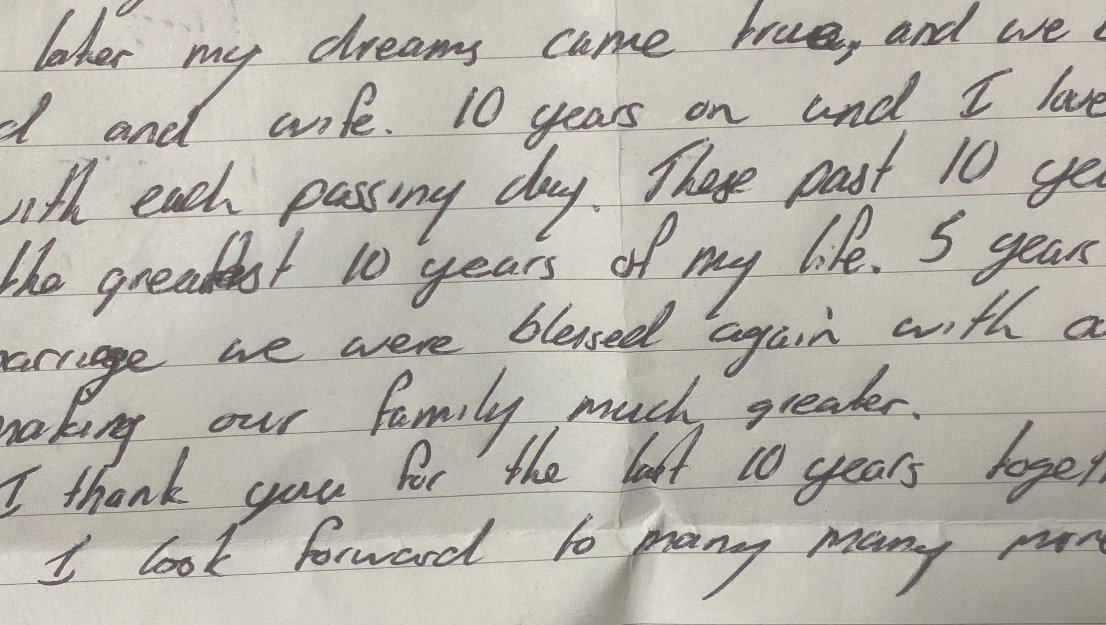 later my dreams came true, and we
d and wife. 10 years on and I love
with each passing day. These past 10 yea
the greatest 10 years of my life. 5 years
marriage we were blessed again with a
making our family much greater.
I thank you for the last 10 years togeth
I look forward to many many more